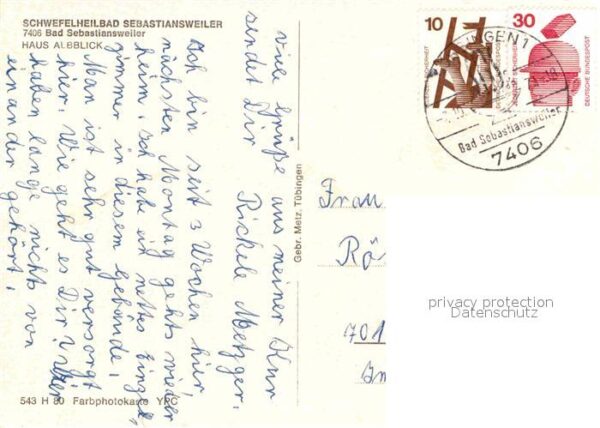 SCHWEFELHEILBAD SEBASTIANSWEILER
7406 Bad Sebastiansweiler
HAUS ALBBLICK
Viele Grüße aus meiner Kur
sendet Dir
Rickele Metzger.
Ich bin seit 3 Wochen hier,
nächsten Montag gehts wieder
heim. Ich habe ein nettes Einzel
zimmer in diesem Gebäude.
Man ist sehr gut versorgt
hier. Wie geht es Dir? Wir
haben lange nichts von
einander gehört.
543 H 80 Farbphotokarte YPC
Gebr. Metz, Tübingen
10
30
DEUTSCHE BUNDESPOST
INGEN 1
Bad Sebastiansweiler
7406
Frau
Rö
701
Im
privacy protection
Datenschutz